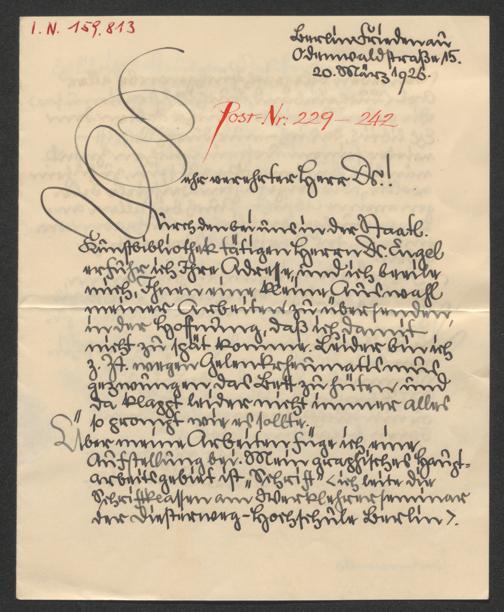 I.N. 159.813
Berlin-Friedenau
Odenwaldstraße 15.
20. März 1926.
Post-Nr: 229 – 242
Sehr verehrter Herr Dr.!
Durch den bei uns in der Staatl.
Kunstbibliothek tätigen Herrn Dr. Engel
erfuhr ich Ihre Adresse, und ich beeile
mich, Ihnen eine kleine Auswahl
meiner Arbeiten zu übersenden,
in der Hoffnung, daß ich damit
nicht zu spät komme. Leider bin ich
z. Zt. wegen Gelenkrheumatismus
gezwungen, das Bett zu hüten und
da klappt leider nicht immer alles
so prompt wie es sollte.
Über meine Arbeiten füge ich eine
Aufstellung bei. Mein graphisches Haupt-
arbeitsgebiet ist „Schrift“ <ich leite die
Schriftklassen am Werklehrerseminar
der Diesterweg-Hochschule Berlin>.